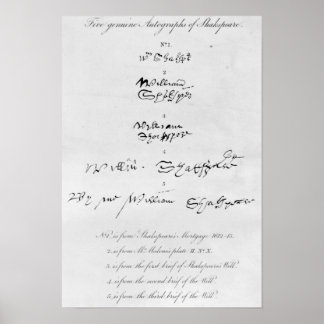 Five genuine Autographs of Shakspeare.
Nº 1.
Wm Shakspe
2
William
Shakspere
3
William
Shakspere
4
Willm Shakspere
5
By me William Shakspeare
Nº 1 is from Shakspeare's Mortgage 1612-13.
2. is from Mr Malone's plate II. Nº X.
3. is from the first brief of Shakspeare's Will.
4. is from the second brief of the Will.
5. is from the third brief of the Will.